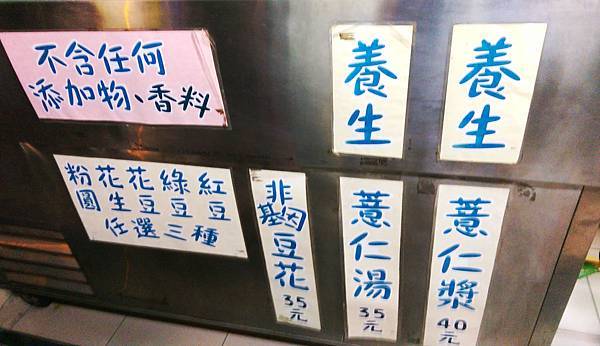 不含任何
添加物、香料
養生
養生
粉花花綠紅
圓生豆豆豆
任選三種
非基因豆花35元
薏仁湯35元
薏仁漿40元